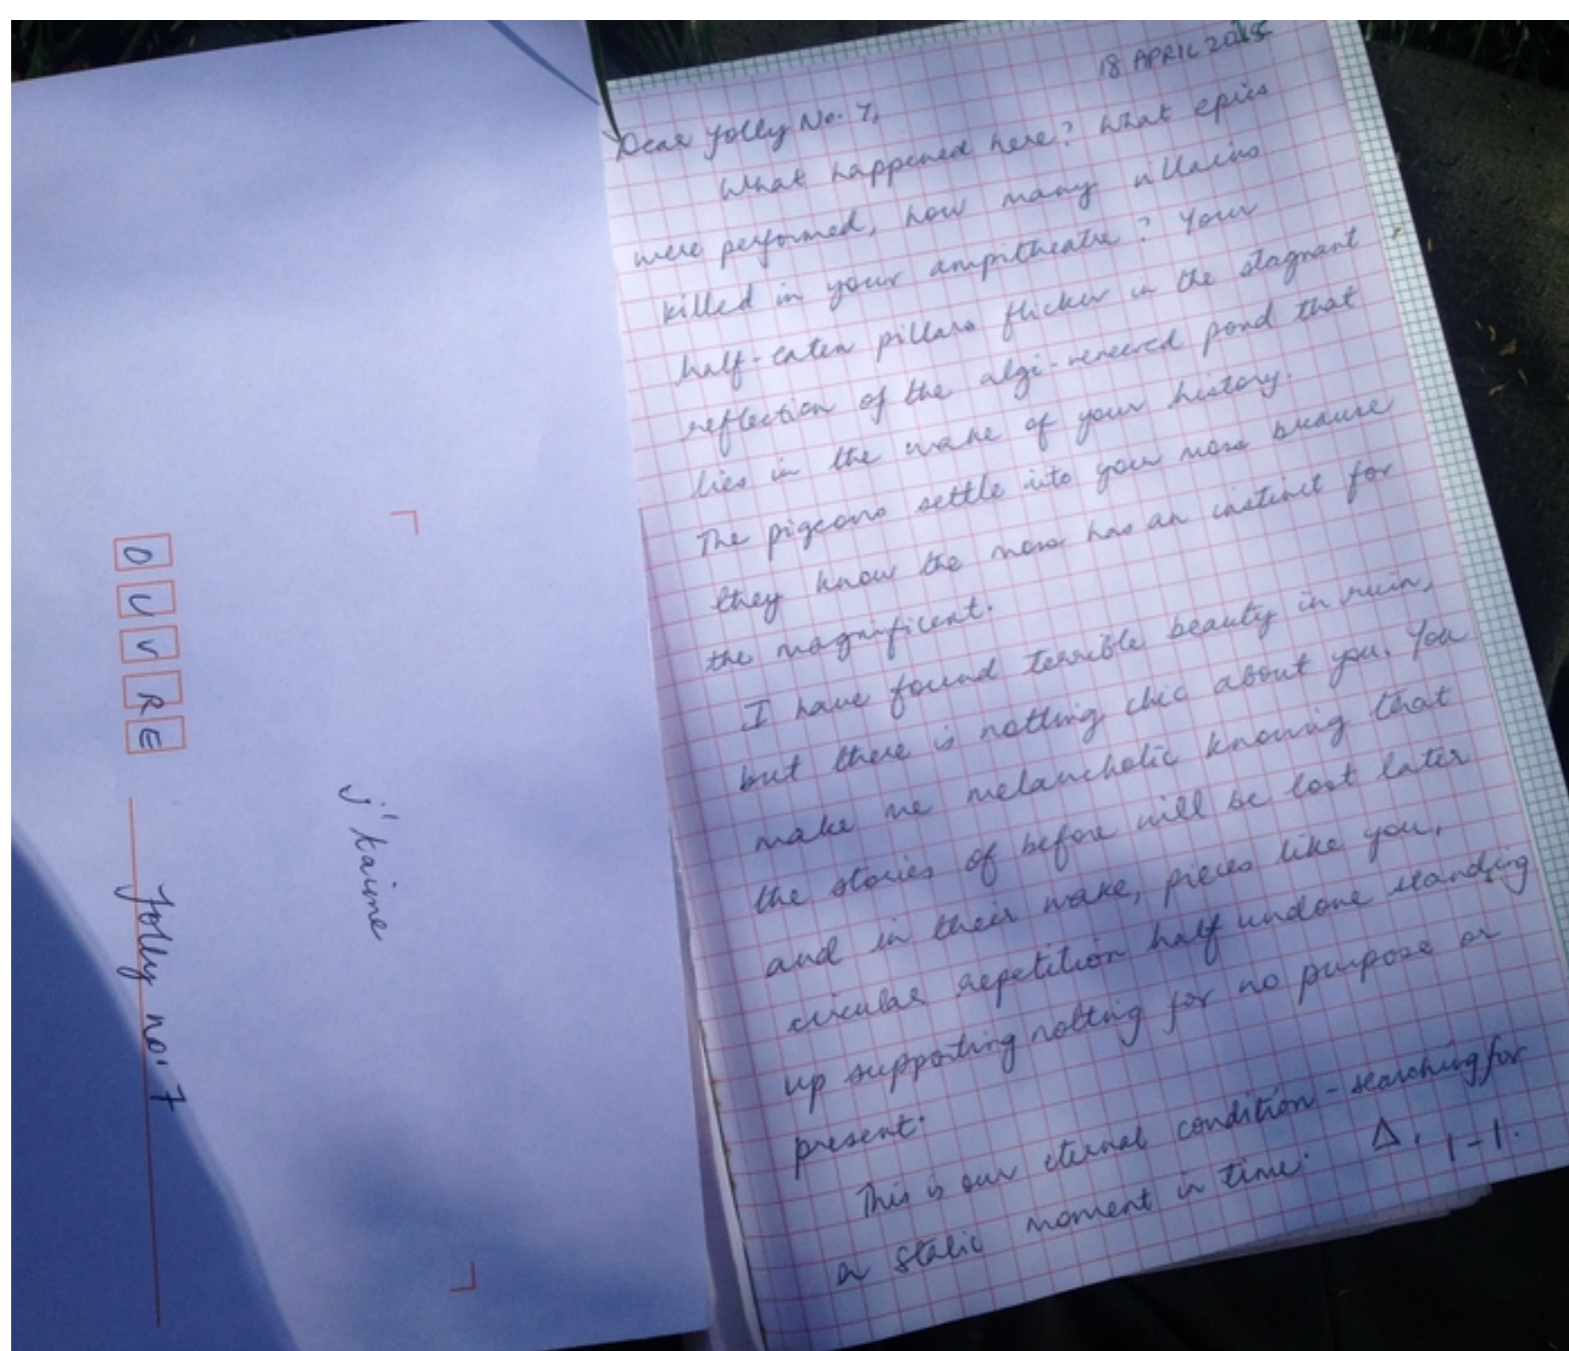 OUVRE
Jolly no. 7
j't'aime
18 APRIL 2015
Dear Jolly No. 7,
What happened here? What epics
were performed, how many villains
killed in your ampitheatre? Your
half-eaten pillars flicker in the stagnant
reflection of the algi-veneered pond that
lies in the wake of your history.
The pigeons settle into your moss because
they know the moss has an instinct for
the magnificent.
I have found terrible beauty in ruin,
but there is nothing chic about you. You
make me melancholic knowing that
the stories of before will be lost later
and in their wake, pieces like you,
circular repetition half undone standing
up supporting nothing for no purpose or
present.
This is our eternal condition - searching for
a static moment in time. Δ. 1-1.